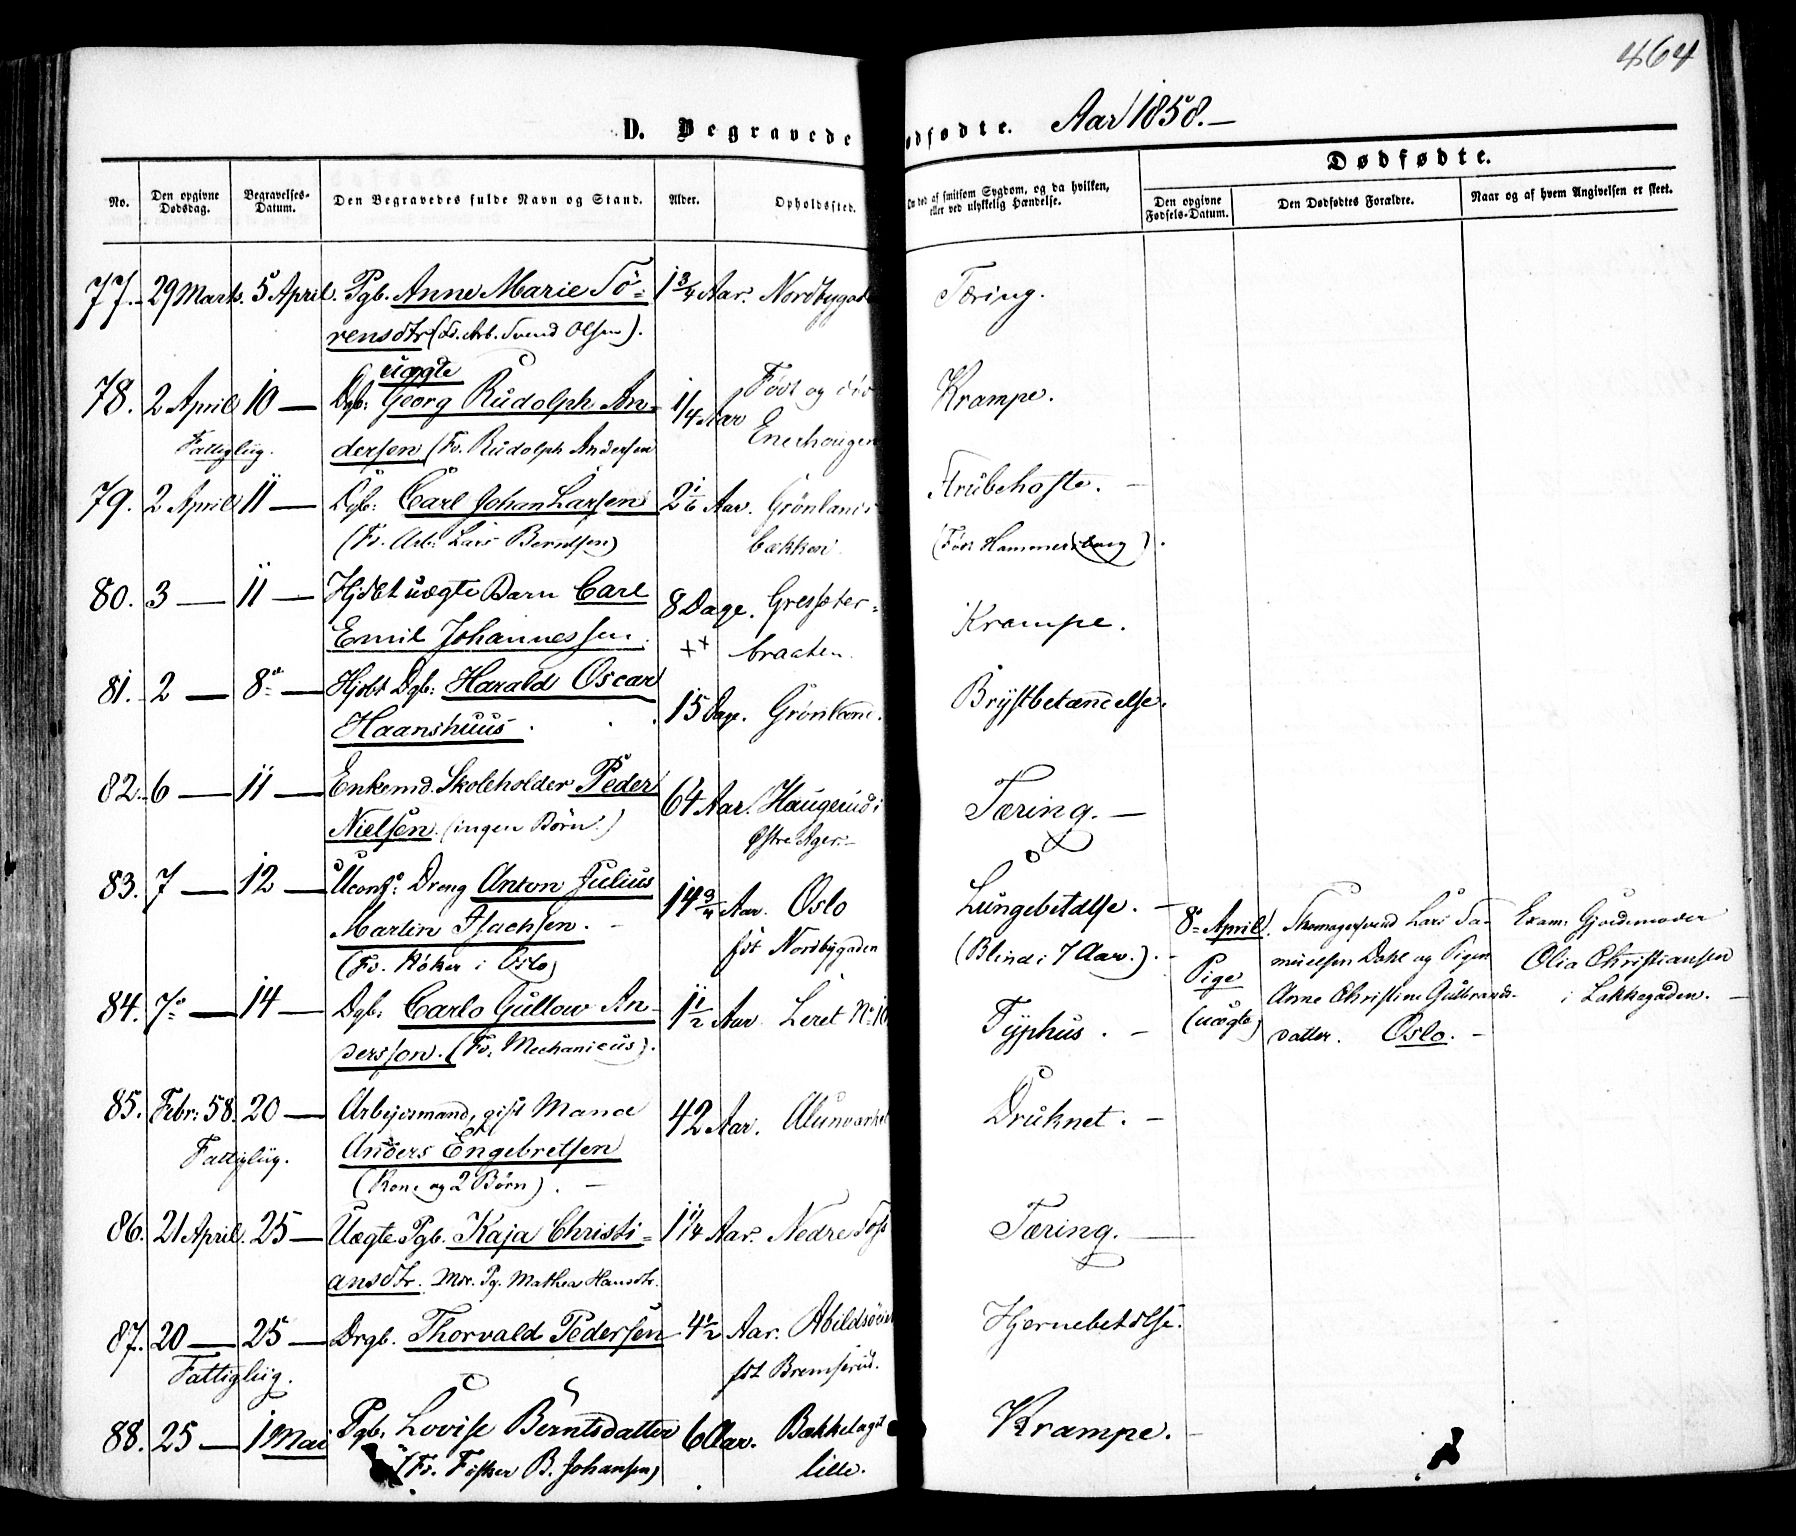 464
D. Begravede
ødfødte. Aar 1858.—
Dødfødte.
No.
Den opgivne Dødsdag.
Begravelses-Datum.
Den Begravedes fulde Navn og Stand.
Alder.
Opholdssted.
Om død af smitsom Sygdom, og da hvilken, eller ved ulykkelig Hændelse.
Den opgivne Fødsels-Datum.
Den Dødfødtes Forældre.
Naar og af hvem Angivelsen er skeet.
77. 29 Marts. 5 April. Pgb. Anne Marie Sö- 1 3/4 Aar. Nordbygade Tæring.
rensdtr (Fr. Arb. Svend Olsen).
uægte
78. 2 April 10 — Dgb: Georg Rudolph An- 1/4 Aar Född og död Krampe.
Fattigliig. dersen (Fr. Rudolph Andersen Enerhaugen
79. 2 April 11 — Dgb: Carl Johan Larsen 2 1/6 Aar. Grönlands- Strubehoste. —
(Fr. Arb: Lars Berntsen) bækken. (Föd Hammersborg).
80. 3 — 11 — Hjdbt uægte Barn Carl 8 Dage. Gresseter- Krampe.
Emil Johannessen. ++ braaten.
81. 2 — 8de — Hjdbt Dgb: Harald Oscar 15 Dage. Grönland. Brystbetændelse.
Haanshuus.
82. 6 — 11 — Enkemd. Skoleholder Peder 64 Aar. Haugerud i Tæring. —
Nielsen. (ingen Börn.) Østre Ager.—
83. 7 — 12 — Uconf: Dreng Anton Julius 14 3/4 Aar. Oslo Lungebetdlse. —
Martin Isachsen. — fdt Nordbygaden (Blind i 7 Aar.). —
(Fr. Höker i Oslo)
8de April. Skomagersvend Lars Sa- Exam: Gjordemoder
Pige muelsen Dahl og Pigen Olia Christiansen
(uægte) Anne Christine Gulbrands- i Lakkegaden. —
datter. Oslo. —
84. 7de — 14 — Dgb: Carlo Gullow An- 1 1/2 Aar. Leret No 16 Typhus. —
dersson. (Fr. Mechanicus).
85. Febr: 58. 20 — Arbeidsmand, gift Mand 42 Aar. Alunverket Druknet. —
Fattigliig. Anders Engebretsen
(Kone og 2 Börn). —
86. 21 April. 25 — Uægte Pgb. Kaja Christi- 1 1/4 Aar. Nedre Foss Tæring. —
ansdtr. Mor. Pg. Mathea Hansdtr.
87. 20 — 25 — Drgb. Thorvald Pedersen 4 1/2 Aar. Abildsöeie Hjernebetdlse.
Fattigliig. fdt Bremsrud.
88. 25 — 1 Mai Pgb. Lovise Berntsdatter 6 Aar. Bakkelaget Krampe. —
(Fr. Fisker B. Johansen) lille.